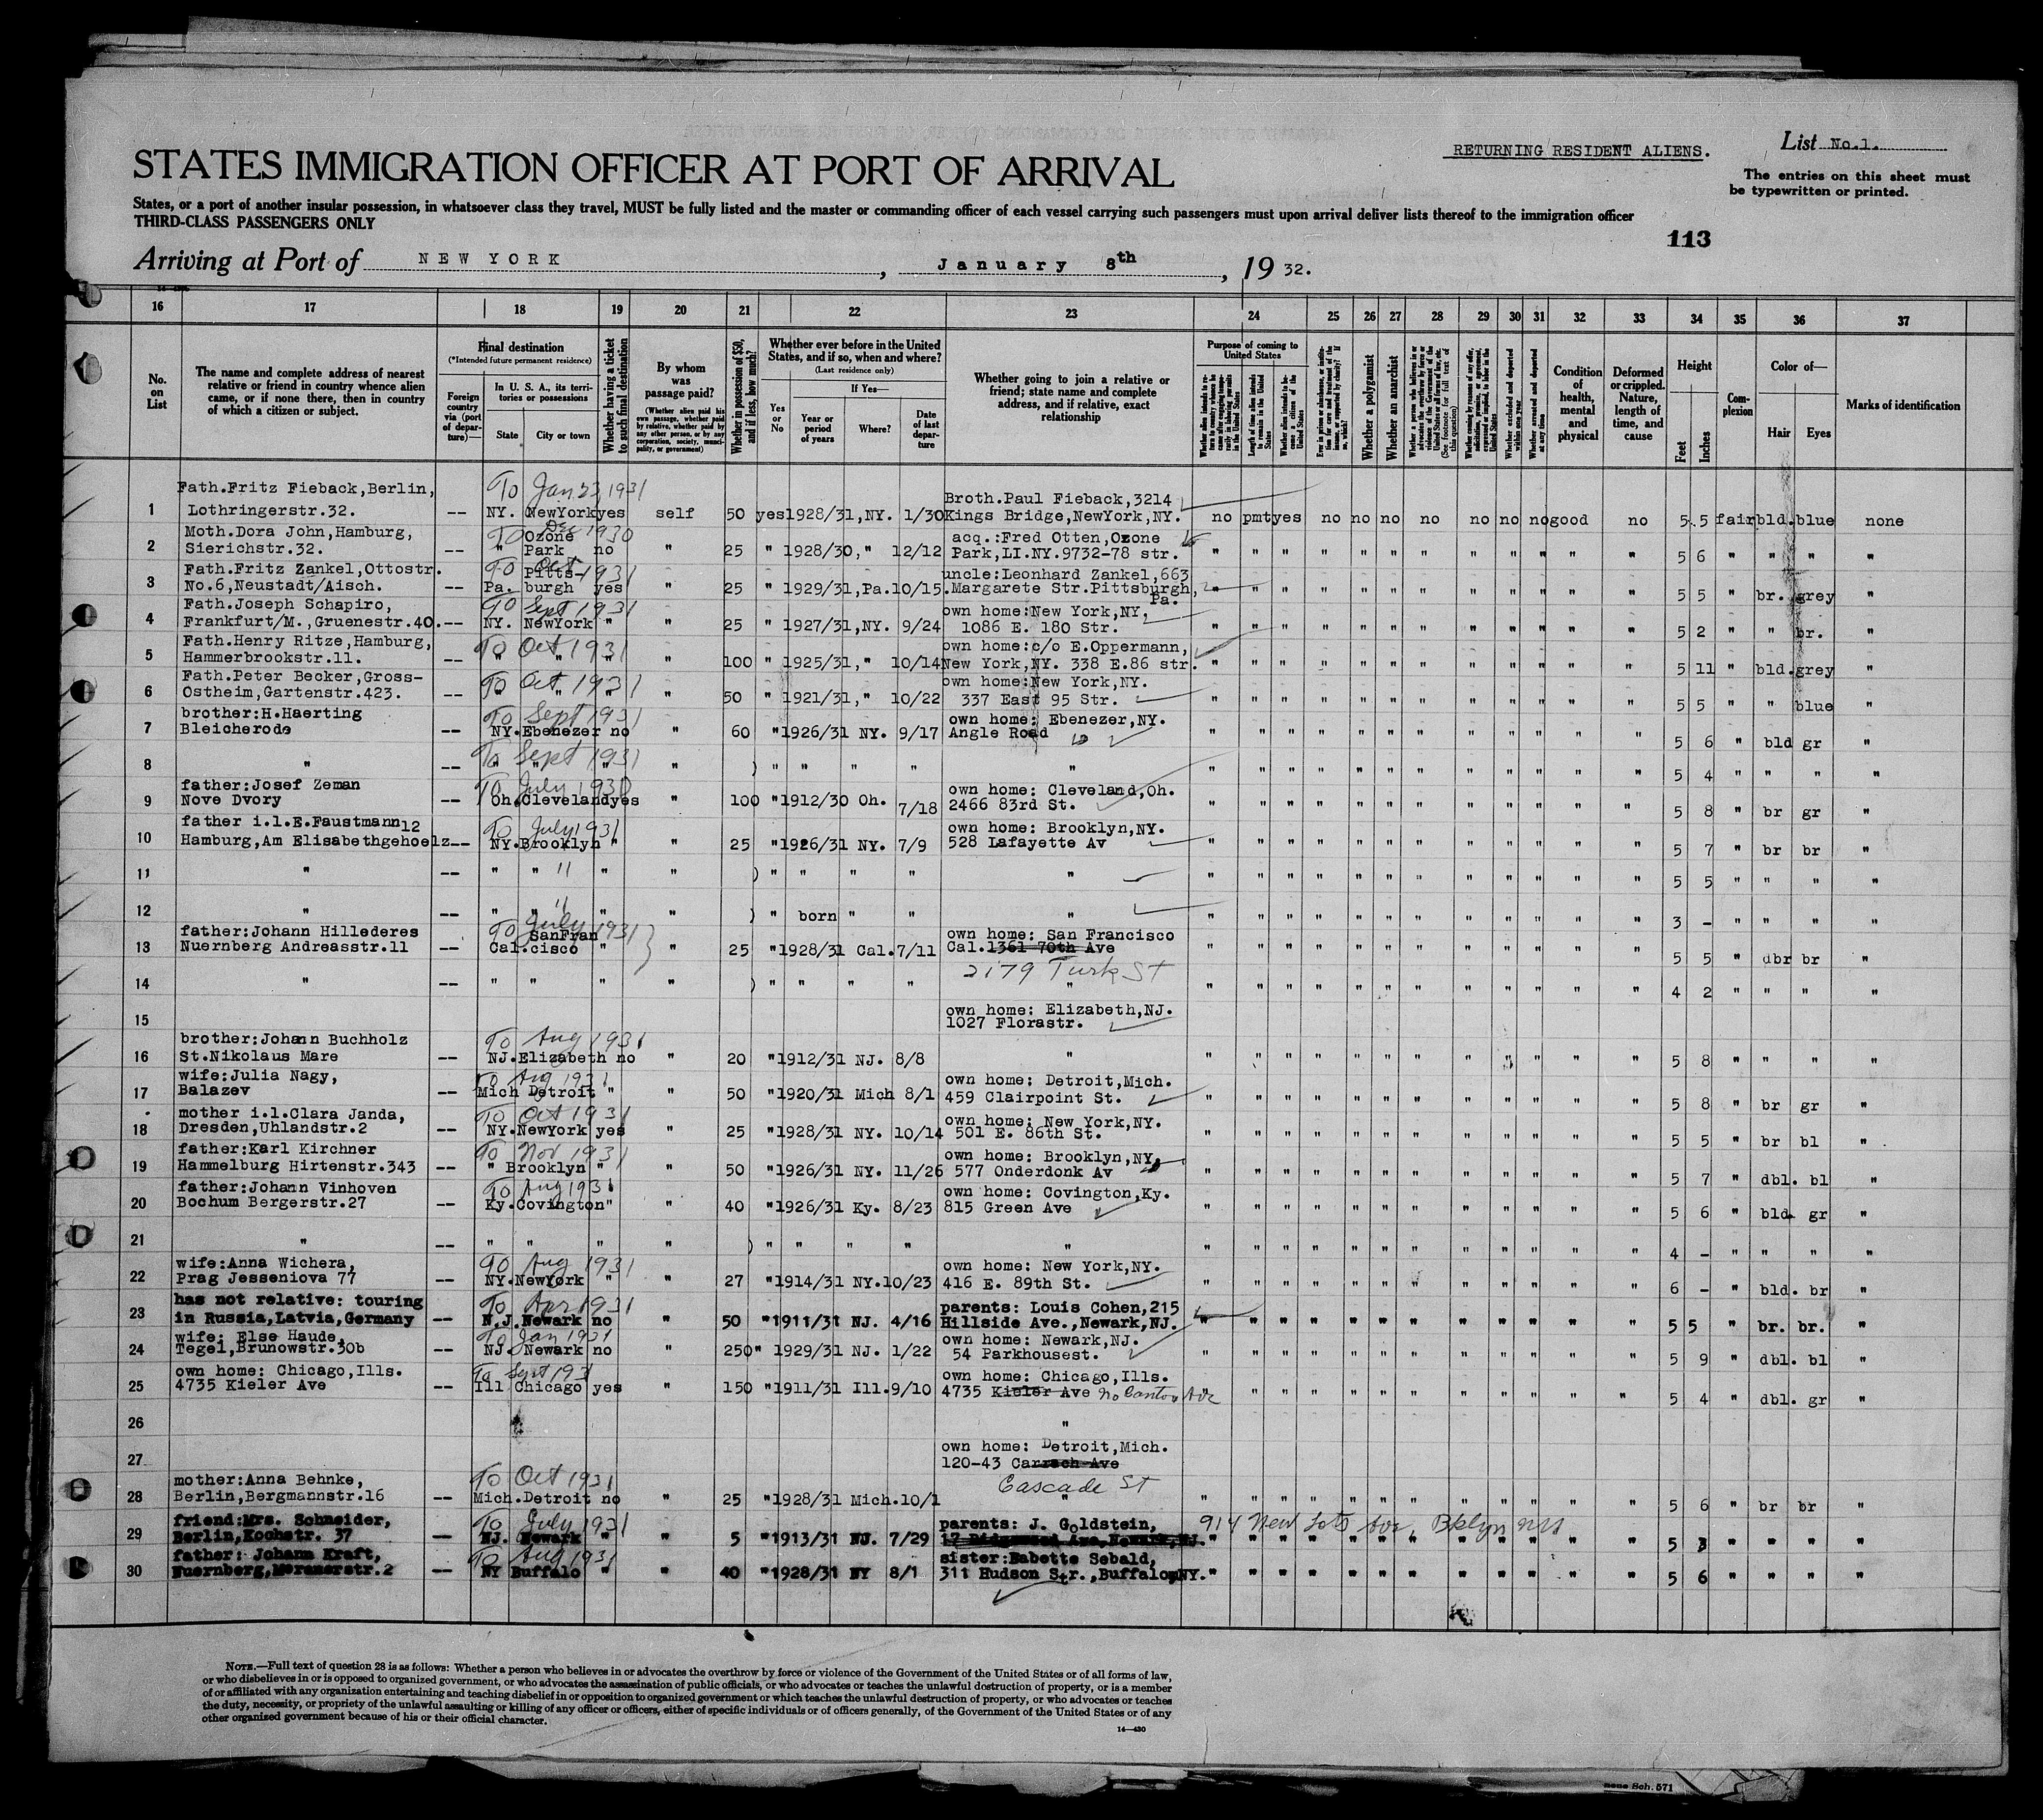 RETURNING RESIDENT ALIENS.
List No.1.
STATES IMMIGRATION OFFICER AT PORT OF ARRIVAL
The entries on this sheet must
be typewritten or printed.
States, or a port of another insular possession, in whatsoever class they travel, MUST be fully listed and the master or commanding officer of each vessel carrying such passengers must upon arrival deliver lists thereof to the immigration officer
THIRD-CLASS PASSENGERS ONLY
113
Arriving at Port of NEW YORK, January 8th, 1932.
16 17 18 19 20 21 22 23 24 25 26 27 28 29 30 31 32 33 34 35 36 37
No. on List
The name and complete address of nearest
relative or friend in country whence alien
came, or if none there, then in country
of which a citizen or subject.
Final destination
(*Intended future permanent residence)
Foreign country via (port of departure)—
In U. S. A., its territories or possessions
State City or town
Whether having a ticket to such final destination
By whom was passage paid?
(Whether alien paid his own passage, whether paid by relative, whether paid by any other person, or by any corporation, society, municipality, or government)
Whether in possession of $50, and if less, how much?
Whether ever before in the United
States, and if so, when and where?
(Last residence only)
If Yes—
Yes or No
Year or period of years
Where?
Date of last departure
Whether going to join a relative or
friend; state name and complete
address, and if relative, exact
relationship
Purpose of coming to United States
Whether a polygamist
Whether an anarchist
Condition of health, mental and physical
Deformed or crippled. Nature, length of time, and cause
Height
Feet Inches
Complexion
Color of—
Hair Eyes
Marks of identification
To Jan 23, 1931
1 Fath.Fritz Fieback,Berlin, Lothringerstr.32. -- NY. NewYork yes self 50 yes 1928/31,NY. 1/30 Broth.Paul Fieback,3214 Kings Bridge,NewYork,NY. no pmt yes no no no no no no no good no 5.5 fair bld. blue none
To Dec 1930
2 Moth.Dora John,Hamburg, Sierichstr.32. -- " Ozone Park no " 25 " 1928/30," 12/12 acq.:Fred Otten,Ozone Park,LI.NY.9732-78 str. " " " " " " " " " " " " 5 6 " " " "
To Oct 1931
3 Fath.Fritz Zankel,Ottostr. No.6,Neustadt/Aisch. -- Pa. Pittsburgh yes " 25 " 1929/31,Pa.10/15. uncle:Leonhard Zankel,663 Margarete Str.Pittsburgh, Pa. " " " " " " " " " " " " 5 5 " br. grey "
To Sept 1931
4 Fath.Joseph Schapiro, Frankfurt/M.,Gruenestr.40. -- NY. NewYork " " 25 " 1927/31,NY. 9/24 own home:New York,NY, 1086 E. 180 Str. " " " " " " " " " " " " 5 2 " " br. "
To Oct 1931
5 Fath.Henry Ritze,Hamburg, Hammerbrookstr.11. -- " " " " 100 " 1925/31," 10/14 own home:c/o E.Oppermann, New York,NY. 338 E.86 str. " " " " " " " " " " " " 5 11 " bld. grey "
To Oct 1931
6 Fath.Peter Becker,Gross- Ostheim,Gartenstr.423. -- " " " " 50 " 1921/31," 10/22 own home:New York,NY. 337 East 95 Str. " " " " " " " " " " " " 5 5 " " blue "
To Sept 1931
7 brother:H.Haerting Bleicherode -- NY.Ebenezer no " 60 " 1926/31 NY. 9/17 own home: Ebenezer,NY. Angle Road " " " " " " " " " " " " 5 6 " bld gr "
To Sept 1931
8 " -- " " " " ) " " " " " " " " " " " " " " " " " 5 4 " " " "
To July 1930
9 father:Josef Zeman Nove Dvory -- Oh.Cleveland yes " 100 " 1912/30 Oh. 7/18 own home: Cleveland,Oh. 2466 83rd St. " " " " " " " " " " " " 5 8 " br gr "
To July 1931
10 father i.l.E.Faustmann 12 Hamburg,Am Elisabethgehoelz-- NY.Brooklyn " " 25 " 1926/31 NY. 7/9 own home: Brooklyn,NY. 528 Lafayette Av " " " " " " " " " " " " 5 7 " br br "
11 " -- " " " " " ) " " " " " " " " " " " " " " " " " 5 5 " " " "
12 " -- " " " " " ) " born " " " " " " " " " " " " " " " " 3 - " " " "
To July 1931
13 father:Johann Hillederes Nuernberg Andreasstr.11 -- Cal. SanFrancisco " " 25 " 1928/31 Cal.7/11 own home: San Francisco Cal.1361 70th Ave " " " " " " " " " " " " 5 5 " dbr br "
2179 Turk St
14 " -- " " " " ) " " " " " " " " " " " " " " " " " 4 2 " " " "
15 own home: Elizabeth,NJ. 1027 Florastr.
To Aug 1931
16 brother:Johann Buchholz St.Nikolaus Mare -- NJ.Elizabeth no " 20 " 1912/31 NJ. 8/8 " " " " " " " " " " " " " 5 8 " " " "
To Aug 1931
17 wife:Julia Nagy, Balazev -- Mich Detroit " " 50 " 1920/31 Mich 8/1 own home: Detroit,Mich. 459 Clairpoint St. " " " " " " " " " " " " 5 8 " br gr "
To Oct 1931
18 mother i.l.Clara Janda, Dresden,Uhlandstr.2 -- NY.NewYork yes " 25 " 1928/31 NY. 10/14 own home: New York,NY. 501 E. 86th St. " " " " " " " " " " " " 5 5 " br bl "
To Nov 1931
19 father:Karl Kirchner Hammelburg Hirtenstr.343 -- " Brooklyn " " 50 " 1926/31 NY. 11/26 own home: Brooklyn,NY, 577 Onderdonk Av " " " " " " " " " " " " 5 7 " dbl. bl "
To Aug 1931
20 father:Johann Vinhoven Bochum Bergerstr.27 -- Ky.Covington " " 40 " 1926/31 Ky. 8/23 own home: Covington,Ky. 815 Green Ave " " " " " " " " " " " " 5 6 " bld. gr "
21 " -- " " " " ) " " " " " " " " " " " " " " " " " 4 - " " " "
To Aug 1931
22 wife:Anna Wichera, Prag Jesseniova 77 -- NY.NewYork " " 27 " 1914/31 NY.10/23 own home: New York,NY. 416 E. 89th St. " " " " " " " " " " " " 6 - " bld. br "
To Apr 1931
23 has not relative: touring in Russia,Latvia,Germany -- N.J.Newark no " 50 " 1911/31 NJ. 4/16 parents: Louis Cohen,215 Hillside Ave.,Newark,NJ. " " " " " " " " " " " " 5 5 " br. br. "
To Jan 1931
24 wife: Else Haude, Tegel,Brunowstr.30b -- NJ. Newark no " 250 " 1929/31 NJ. 1/22 own home: Newark,NJ. 54 Parkhousest. " " " " " " " " " " " " 5 9 " dbl. bl "
To Sept 1931
25 own home: Chicago,Ills. 4735 Kieler Ave -- Ill Chicago yes " 150 " 1911/31 Ill.9/10 own home: Chicago,Ills. 4735 Kieler Ave No Ave " " " " " " " " " " " 5 4 " dbl. gr "
26 "
27 own home: Detroit,Mich. 120-43
Cascade St
To Oct 1931
28 mother:Anna Behnke, Berlin,Bergmannstr.16 -- Mich.Detroit no " 25 " 1928/31 Mich.10/1 " " " " " " " " " " " " " 5 6 " br br "
To July 1931
29 friend:Mrs. Schneider, Berlin,Kochstr. 37 -- NJ. Newark " " 5 " 1913/31 NJ. 7/29 parents: J. Goldstein, 914 New Lots Ave. Bklyn NY " " " " " " " " " " " " 5 3 " " " "
To Aug 1931
30 father: Johann Kraft, -- NY Buffalo " " 40 " 1928/31 NY 8/1 sister:Babette Sebald, 311 Hudson Str.,Buffalo,NY. " " " " " " " " " " " " 5 6 " " " "
NOTE.—Full text of question 28 is as follows: Whether a person who believes in or advocates the overthrow by force or violence of the Government of the United States or of all forms of law,
or who disbelieves in or is opposed to organized government, or who advocates the assassination of public officials, or who advocates or teaches the unlawful destruction of property, or is a member
of or affiliated with any organization entertaining and teaching disbelief in or opposition to organized government or which teaches the unlawful destruction of property, or who advocates or teaches
the duty, necessity, or propriety of the unlawful assaulting or killing of any officer or officers, either of specific individuals or of officers generally, of the Government of the United States or of any
other organized government because of his or their official character.
14—430
Sch. 571